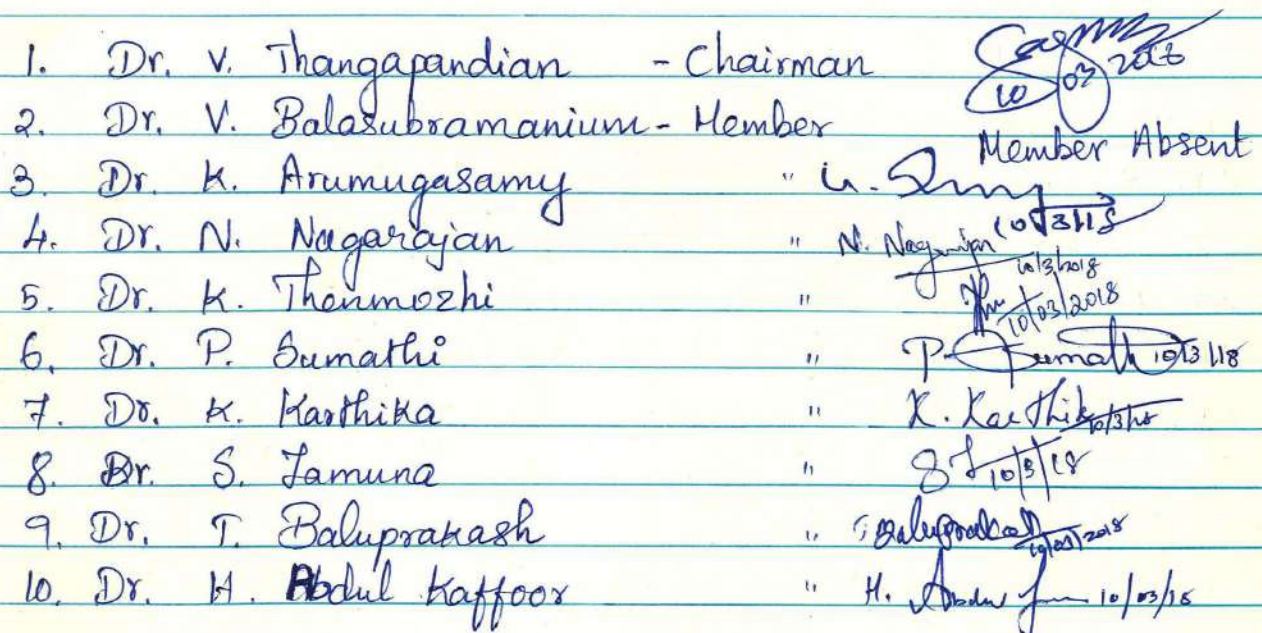 1. Dr. V. Thangapandian - Chairman 10 03 2018
2. Dr. V. Balasubramanium - Member Member Absent
3. Dr. K. Arumugasamy " 10/3/18
4. Dr. N. Nagarajan " N. Nagarajan 10/3/2018
5. Dr. K. Thenmozhi " 10/03/2018
6. Dr. P. Sumathi " P. Sumathi 10/3/18
7. Dr. K. Karthika " K. Karthika 10/3/18
8. Dr. S. Jamuna " S J 10/3/18
9. Dr. T. Baluprakash " T. Baluprakash 10/03/2018
10. Dr. H. Abdul Kaffoor " H. Abdul 10/03/18